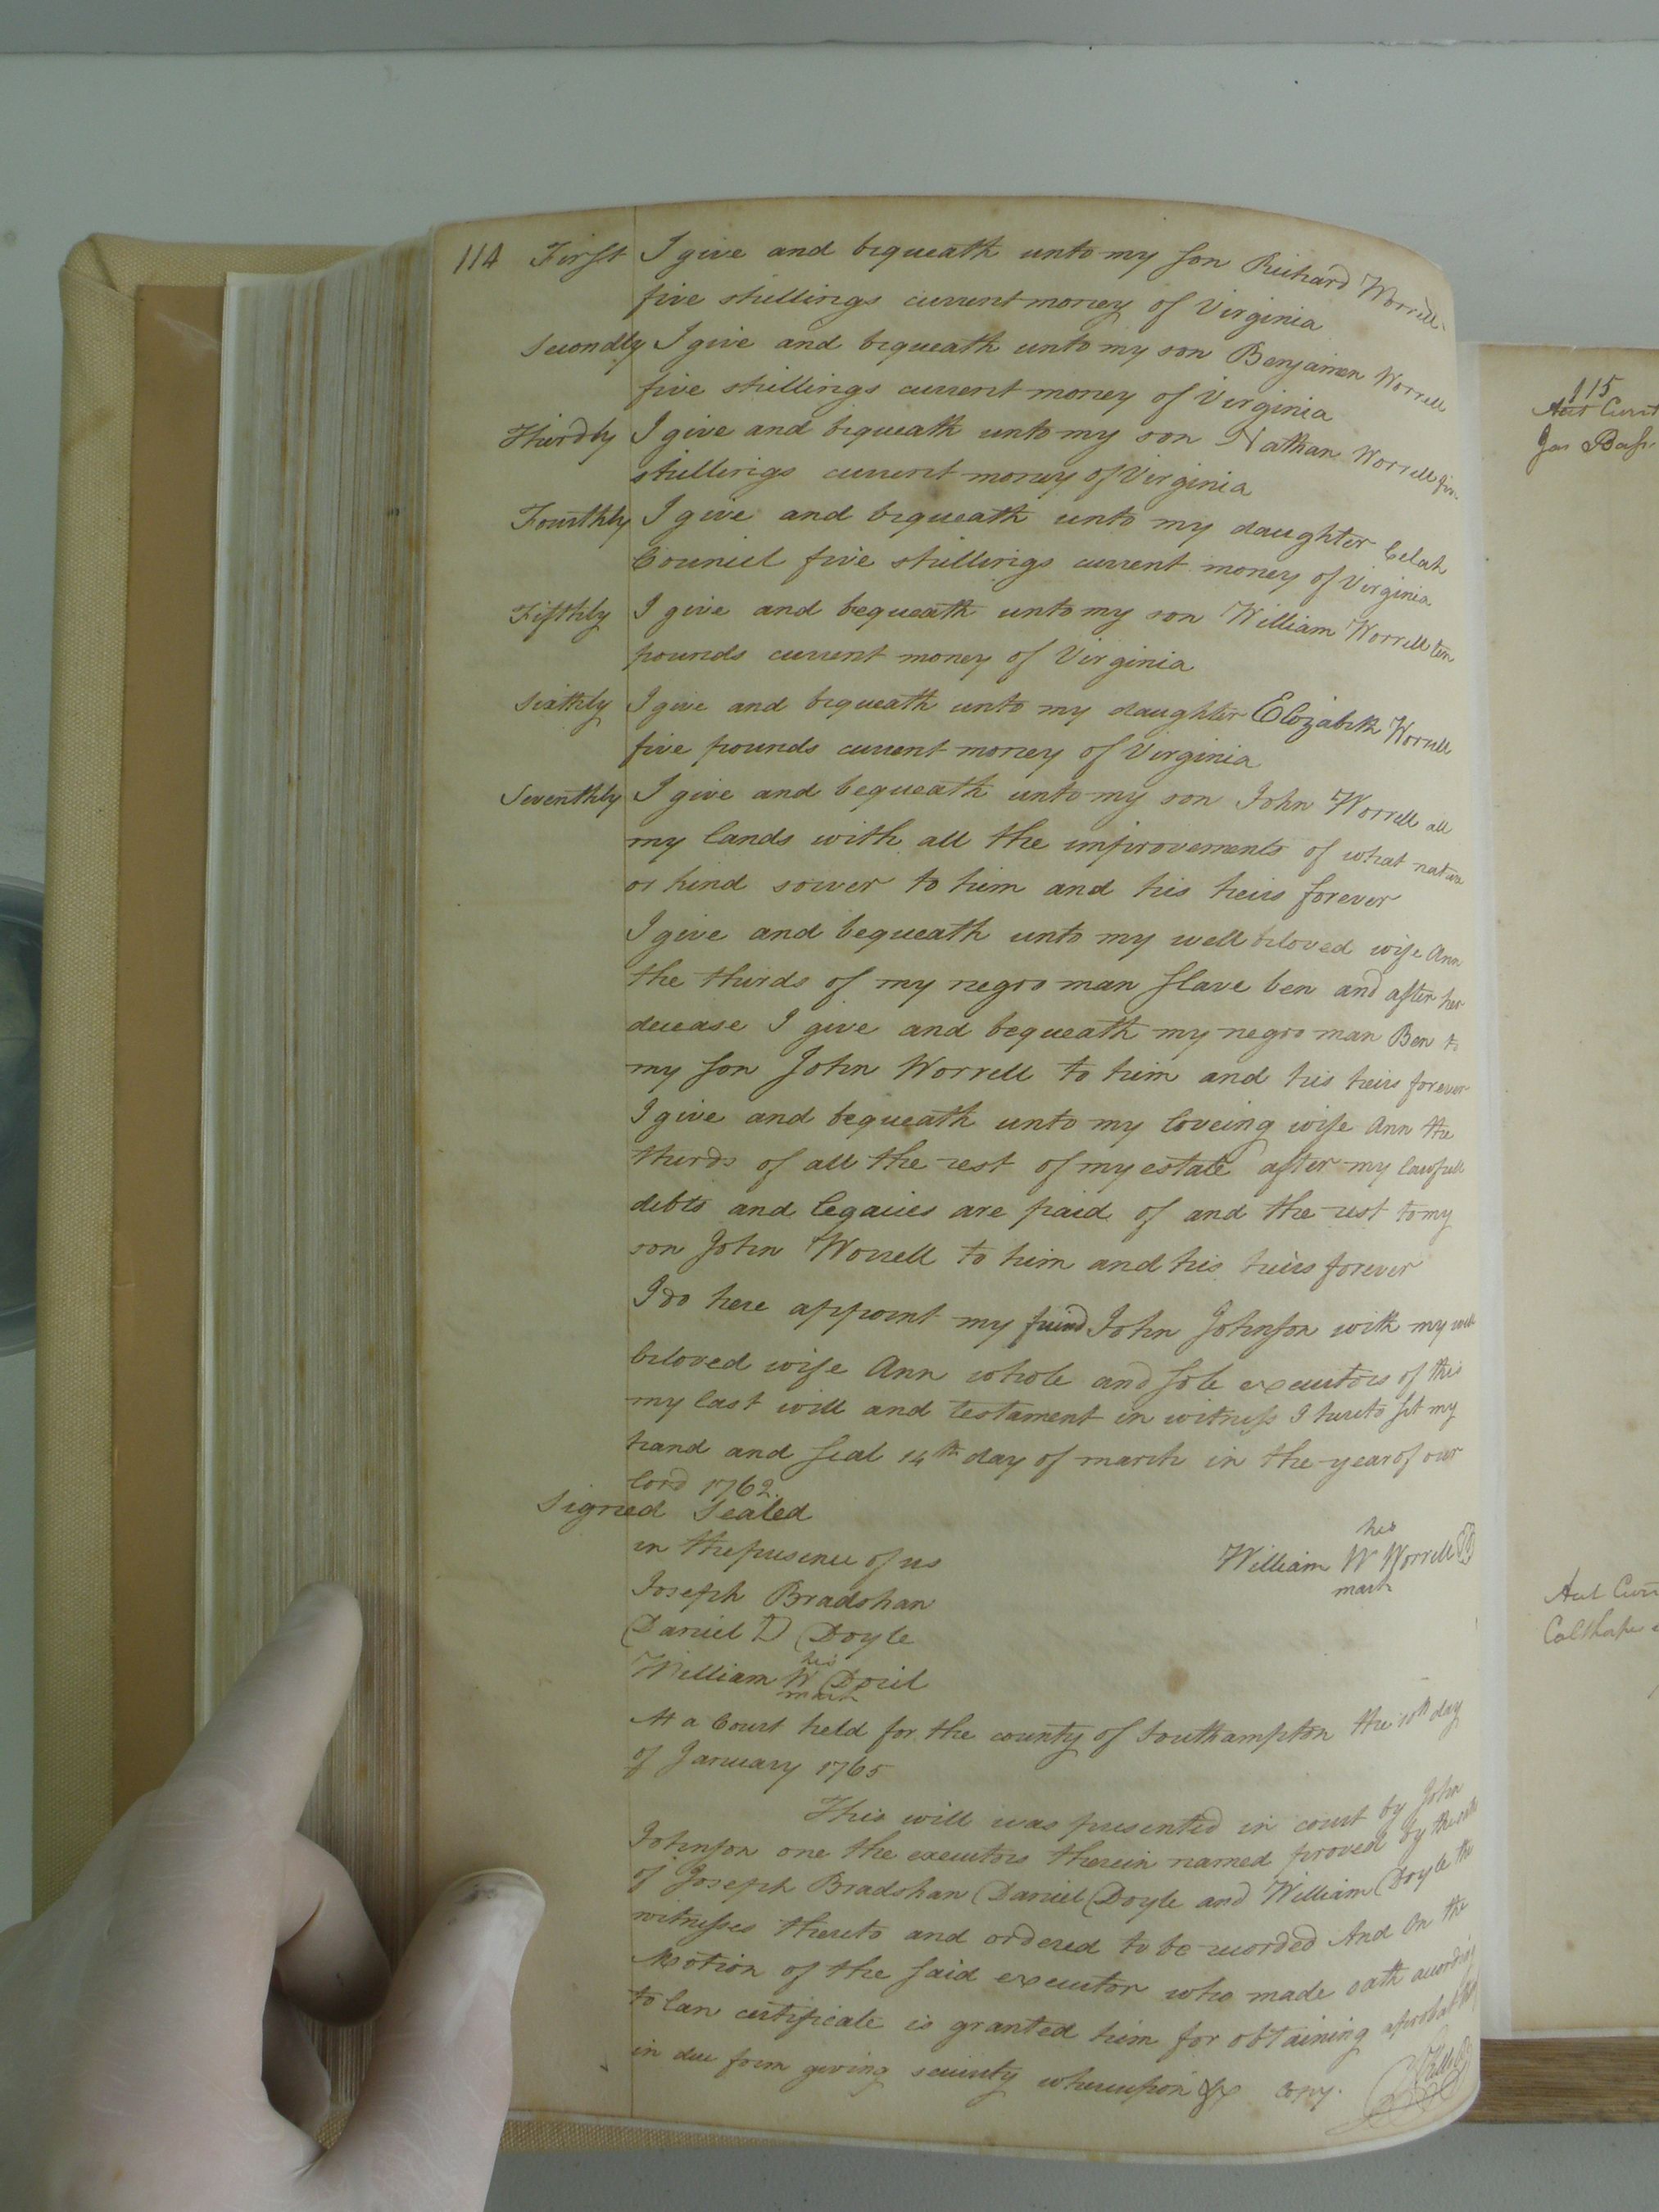 114 First I give and bequeath unto my son Richard Worrell
five shillings current money of Virginia
Secondly I give and bequeath unto my son Benjamen Worrell
five shillings current money of Virginia
Thirdly I give and bequeath unto my son Nathan Worrell five
shillings current money of Virginia
Fourthly I give and bequeath unto my daughter Celah
Councel five shillings current money of Virginia
Fifthly I give and bequeath unto my son William Worrell ten
pounds current money of Virginia
Sixthly I give and bequeath unto my daughter Elizabeth Worrell
five pounds current money of Virginia
Seventhly I give and bequeath unto my son John Worrell all
my lands with all the improvements of what nature
or kind soever to him and his heirs forever
I give and bequeath unto my well beloved wife Ann
the thirds of my negro man slave ben and after her
decease I give and bequeath my negro man Ben to
my son John Worrell to him and his heirs forever
I give and bequeath unto my loveing wife Ann the
thirds of all the rest of my estate after my lawfull
debts and legacies are paid of and the rest to my
son John Worrell to him and his heirs forever
I do here appoint my friend John Johnson with my well
beloved wife Ann whole and sole executors of this
my last will and testament in witness I hereto set my
hand and seal 14th day of march in the year of our
lord 1762.
Signed Sealed
in the presence of us
his
William W Worrell
mark
Joseph Bradshan
Daniel D Doyle
his
William W Doiel
mark
At a Court held for the county of Southampton the 10th day
of January 1765
This will was presented in court by John
Johnson one the executors therein named proved by the oaths
of Joseph Bradshan Daniel Doyle and William Doyle the
witnesses thereto and ordered to be recorded And On the
Motion of the said executor who made oath according
to law certificate is granted him for obtaining a probat
in due form giving security whereupon &c Copy.
115